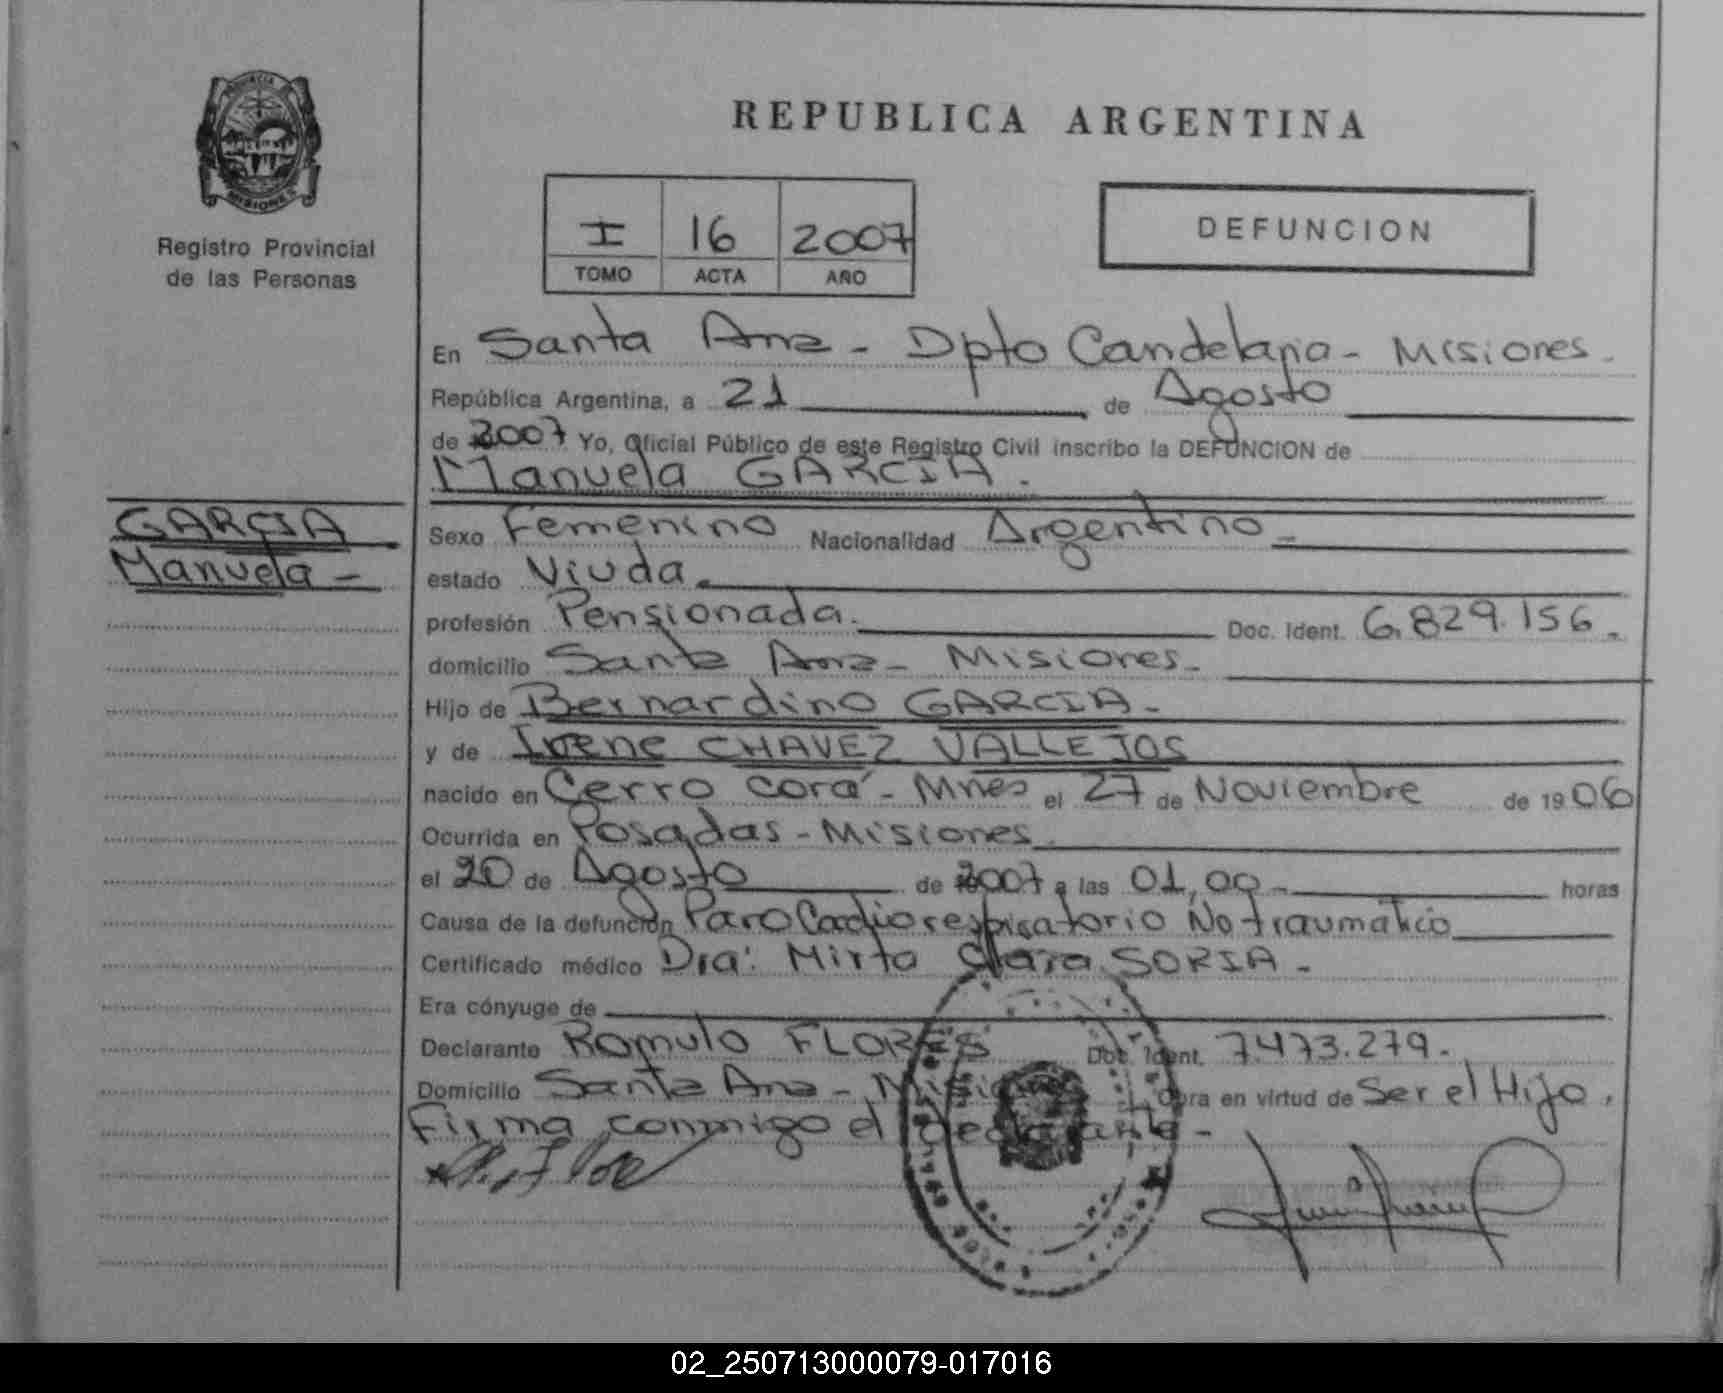 PROVINCIA DE
MISIONES
Registro Provincial
de las Personas
REPUBLICA ARGENTINA
I 16 2007
TOMO ACTA AÑO
DEFUNCION
En Santa Ana - Dpto Candelaria - Misiones.
República Argentina, a 21 de Agosto
de 2007 Yo, Oficial Público de este Registro Civil inscribo la DEFUNCION de
Manuela GARCIA.
GARCIA
Manuela -
Sexo Femenino Nacionalidad Argentino -
estado Viuda.
profesión Pensionada. Doc. Ident. 6.829.156.
domicilio Santa Ana - Misiones -
Hijo de Bernardino GARCIA -
y de Irene CHAVEZ VALLEJOS
nacido en Cerro corá - Mnes el 27 de Noviembre de 1906
Ocurrida en Posadas - Misiones.
el 20 de Agosto de 2007 a las 01,00 - horas
Causa de la defunción Paro Cadiorespiratorio No traumatico
Certificado médico Dra: Mirta Clara SORIA -
Era cónyuge de
Declarante Romulo FLORES Doc. Ident. 7.473.279.
Domicilio Santa Ana - Misiones Obra en virtud de Ser el Hijo.
Firma conmigo el declarante -
02_250713000079-017016